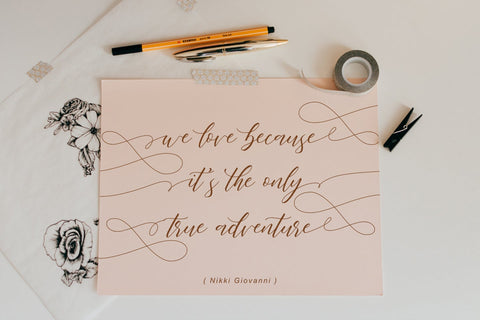 we love because
it's the only
true adventure
( Nikki Giovanni )